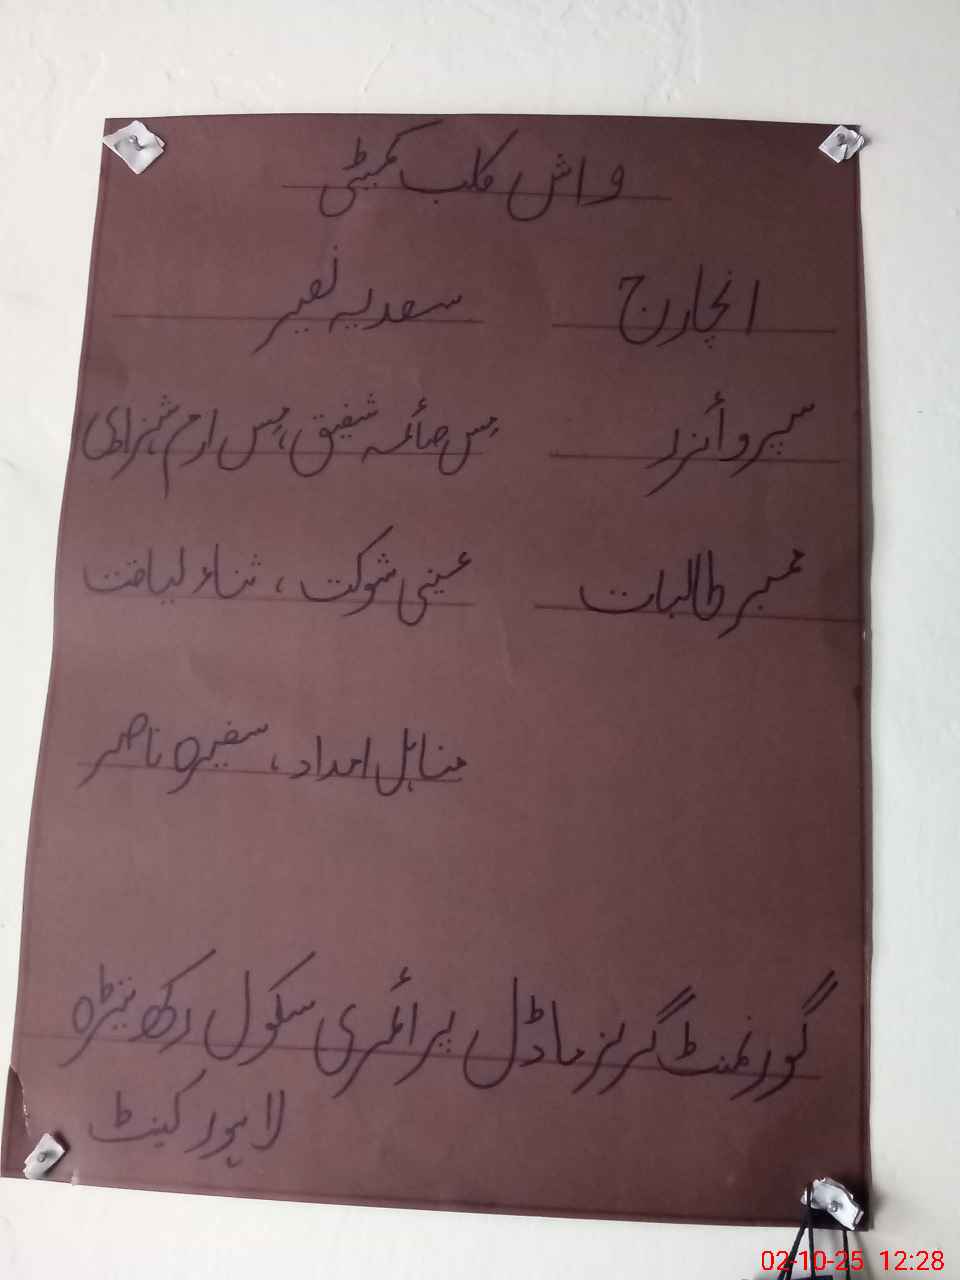 واش کلب کمیٹی
انچارج سعدیہ نصیر
سپروائزر مس صائمہ شفیق، مس ارم شہزادی
ممبر طالبات عینی شوکت، ثناء لیاقت
مناہل امداد، سفیرہ ناصر
گورنمنٹ گرلز ماڈل پرائمری سکول رکھ
لاہور کینٹ
02-10-25 12:28